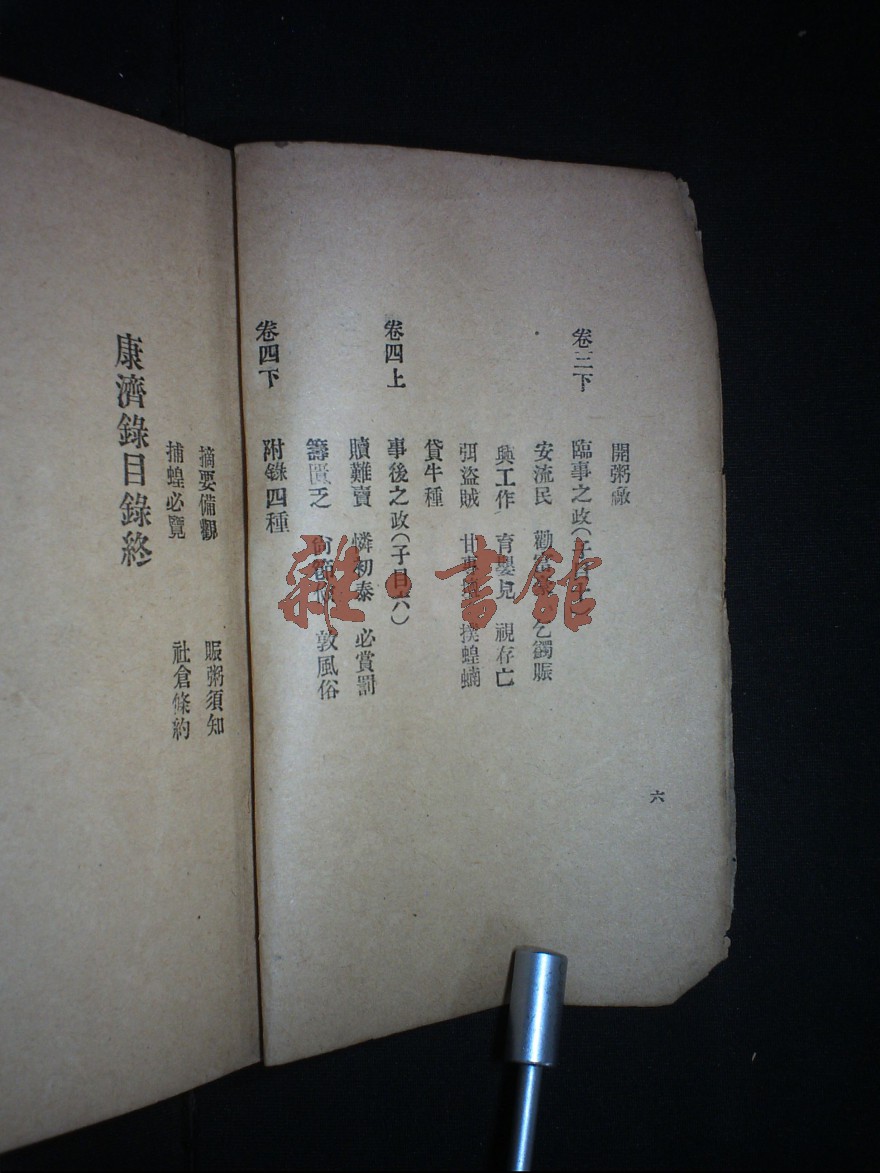 開粥廠
卷三下
臨事之政(子目十)
安流民 勸富 乞蠲賑
興工作 育嬰兒 視存亡
弭盜賊 甘專 撲蝗蝻
貸牛種
卷四上
事後之政(子目六)
贖難賣 憐初泰 必賞罰
籌匱乏 尚節儉 敦風俗
卷四下
附錄四種
摘要備觀 賑粥須知
捕蝗必覽 社倉條約
康濟錄目錄終
六
雜·書館